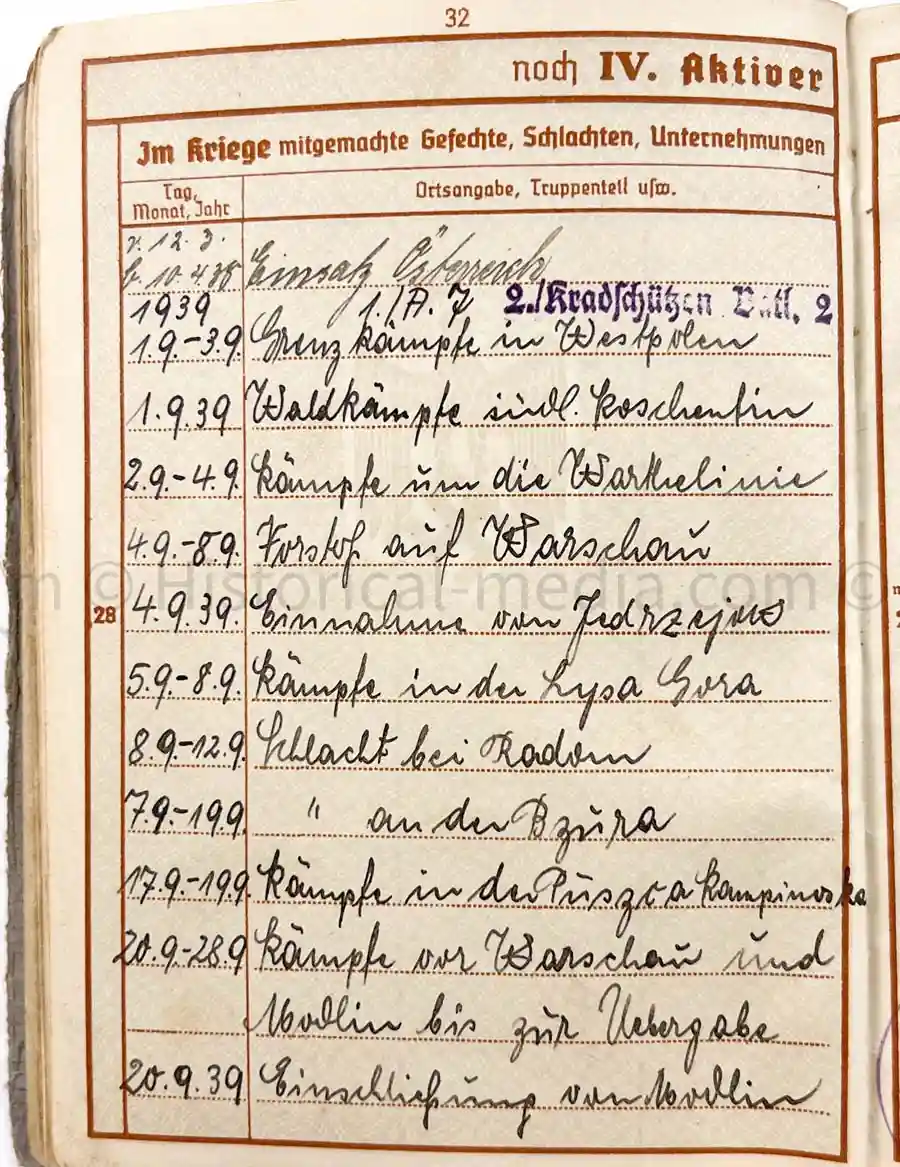 32
noch IV. Aktiver
Im Kriege mitgemachte Gefechte, Schlachten, Unternehmungen
Tag, Monat, Jahr
Ortsangabe, Truppenteil usw.
v. 12. 3.
b. 10.4.38 Einsatz Österreich
1939 1./A. 7 2./Kradschützen Batl. 2
1.9.-3.9. Grenzkämpfe in Westpolen
1.9.39 Waldkämpfe südl. Koschentin
2.9.-4.9. Kämpfe um die Warthelinie
4.9.-8.9. Vorstoß auf Warschau
© Historical-media.com ©
28
4.9.39. Einnahme von Jedrzejow
5.9.-8.9. Kämpfe in der Lysa Gora
8.9.-12.9. Schlacht bei Radom
7.9.-19.9. " an der Bzura
17.9.-19.9. Kämpfe in der Puszca Kampinoska
20.9.-28.9 Kämpfe vor Warschau und
Modlin bis zur Uebergabe
20.9.39 Einschließung von Modlin